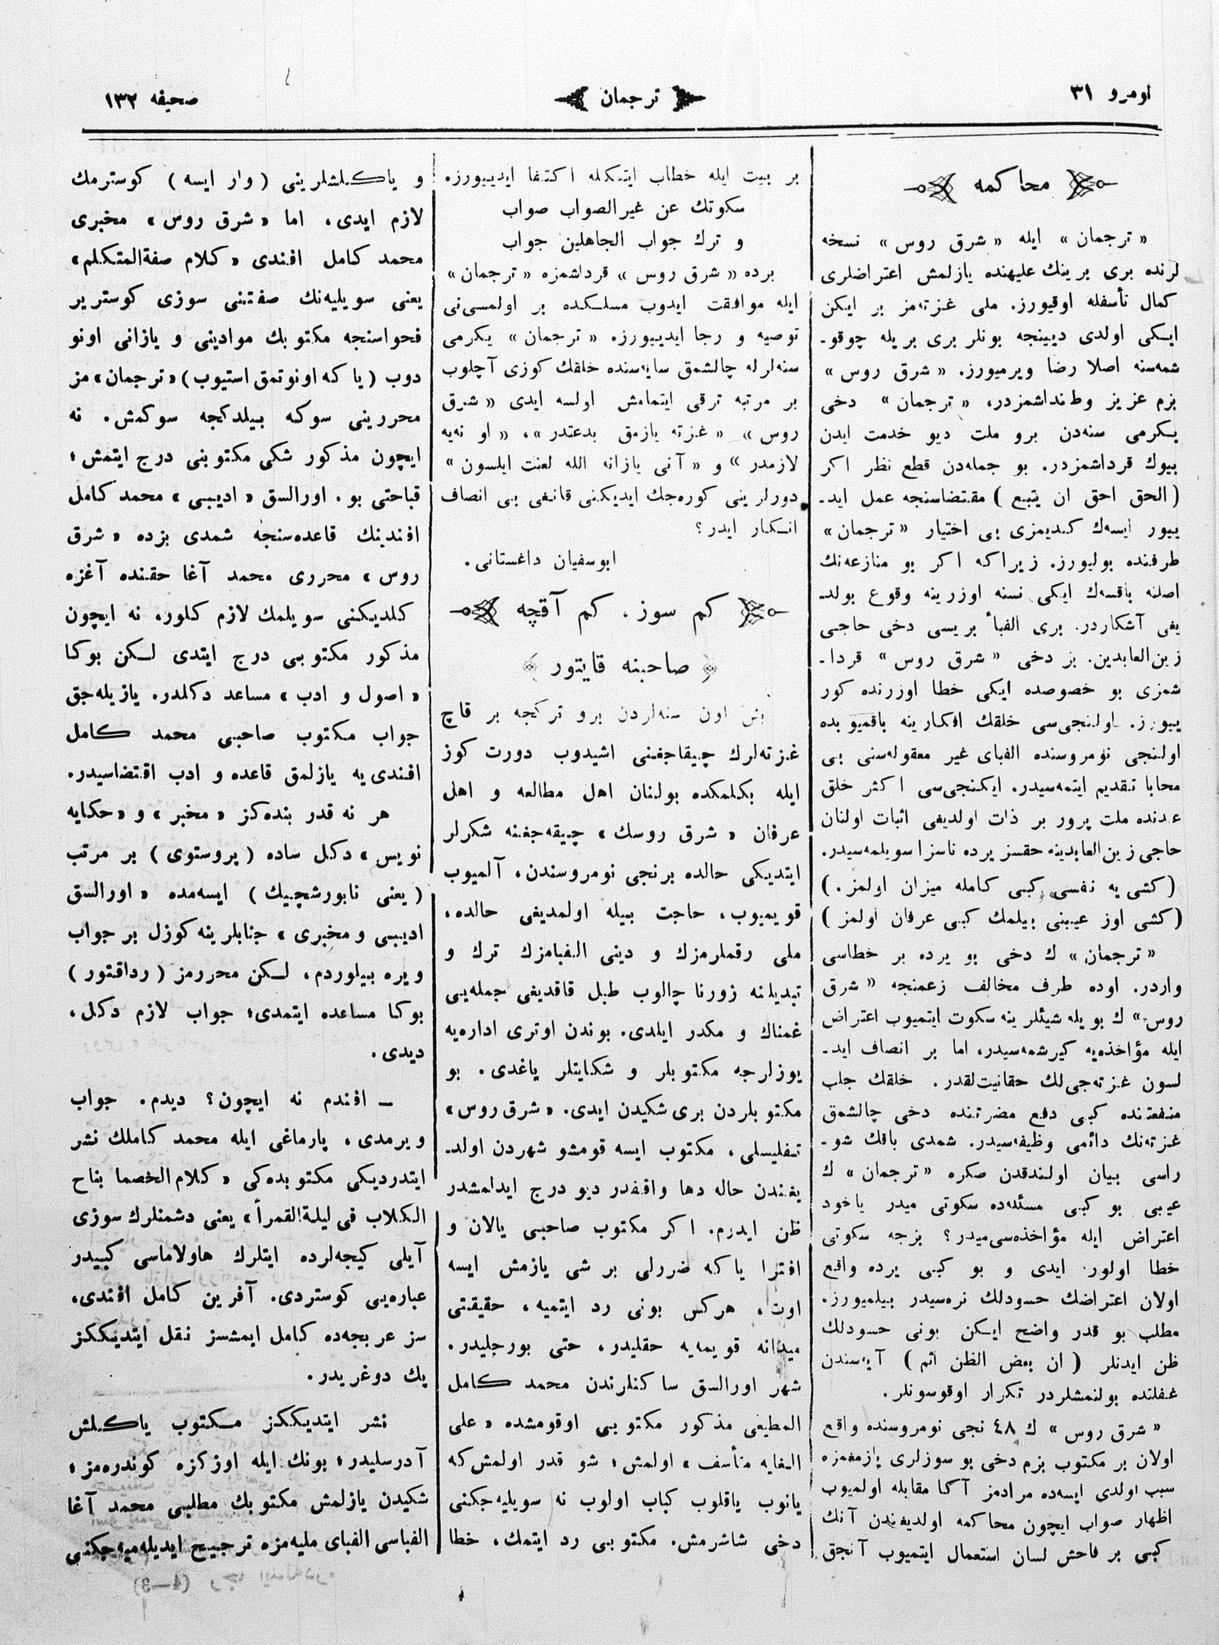 نومرو ٣١
ترجمان
صحیفه ١٣٢
محاکمه
« ترجمان » ایله « شرق روس » نسخه
لرنده بری برینك علیهنده یازلمش اعتراضلری
کمال تأسفله اوقیورز. ملی غزته‌مز بر ایکن
ایکی اولدی دیینجه بونلر بری بریله چوقو-
شمه‌سنه اصلا رضا ویرمیورز. « شرق روس »
بزم عزیز وطنداشمزدر، « ترجمان » دخی
یکرمی سنه‌دن برو ملت دیو خدمت ایدن
بیوك قرداشمزدر. بو جمله‌دن قطع نظر اکر
( الحق احق ان یتبع ) مقتضاسنجه عمل اید-
ییور ایسه‌ك کندیمزی بی اختیار « ترجمان »
طرفنده بولیورز. زیراکه اکر بو منازعه‌نك
اصلنه باقسه‌ك ایکی نسنه اوزرینه وقوع بولد-
یغی آشکاردر. بری الفبا بریسی دخی حاجی
زین‌العابدین. بز دخی « شرق روس » قردا-
شمزی بو خصوصده ایکی خطا اوزرنده کور
ییورز. اولنجی‌سی خلقك افکارینه باقمیوبده
اولنجی نومروسنده الفبای غیر معقوله‌سنی بی
محابا تقدیم ایتمه‌سیدر. ایکنجی‌سی اکثر خلق
عندنده ملت پرور بر ذات اولدیغی اثبات اولنان
حاجی زین‌العابدینه حقسز یرده ناسزا سویلمه‌سیدر.
( کشی یه نفسی کبی کامله میزان اولمز . )
( کشی اوز عیبنی بیلمك کبی عرفان اولمز )
« ترجمان » ك دخی بو یرده بر خطاسی
واردر. اوده طرف مخالف زعمنجه « شرق
روس » ك بویله شیئلرینه سکوت ایتمیوب اعتراض
ایله مؤاخذه‌یه کیرشمه‌سیدر، اما بر انصاف اید-
لسون غزته‌جی‌لك حقانیت‌لقدر. خلقك جلب
منفعتنده کبی دفع مضرتنده دخی چالشمق
غزته‌نك دائمی وظیفه‌سیدر. شمدی باقك شو-
راسی بیان اولندقدن صکره « ترجمان » ك
عیبی بو کبی مسئله‌ده سکوتی میدر یاخود
اعتراض ایله مؤاخذه‌سی‌میدر؟ بزجه سکوتی
خطا اولور ایدی و بو کبی یرده واقع
اولان اعتراضك حسودلك نره‌سیدر بیلمیورز.
مطلب بو قدر واضح ایکن بونی حسودلك
ظن ایدنلر ( ان بعض الظن اثم ) آیه‌سندن
غفلتده بولنمشلردر تکرار اوقوسونلر.
« شرق روس » ك ٤٨ نجی نومروسنده واقع
اولان بر مکتوب بزم دخی بو سوزلری یازمغمزه
سبب اولدی ایسه‌ده مرادمز آکا مقابله اولمیوب
اظهار صواب ایچون محاکمه اولدیغندن آنك
کبی بر فاحش لسان استعمال ایتمیوب آنجق
بر بیت ایله خطاب ایتمکله اکتفا ایدییورز.
سکوتك عن غیرالصواب صواب
و ترك جواب الجاهلین جواب
برده « شرق روس » قرداشمزه « ترجمان »
ایله موافقت ایدوب مسلکده بر اولمسی‌نی
توصیه و رجا ایدییورز. « ترجمان » یکرمی
سنه‌لرله چالشمق سایه‌سنده خلقك کوزی آچلوب
بر مرتبه ترقی ایتمامش اولسه ایدی « شرق
روس » « غزته یازمق بدعتدر »، « او نه‌یه
لازمدر » و « آنی یازانه الله لعنت ایلسون »
دورلرینی کوره‌جك ایدیکنی قانغی بی انصاف
انکار ایدر؟
ابوسفیان داغستانی.
کم سوز. کم آقچه
صاحبنه قایتور
بش اون سنه‌لردن برو ترکجه بر قاچ
غزته‌لرك چیقاجغنی اشیدوب دورت کوز
ایله بکلمکده بولنان اهل مطالعه و اهل
عرفان « شرق روسك » چیقه‌جغنه شکرلر
ایتدیکی حالده برنجی نومروسندن، آلمیوب
قویمیوب، حاجت بیله اولمدیغی حالده،
ملی رقملرمزك و دینی الفبامزك ترك و
تبدیلنه زورنا چالوب طبل قاقدیغی جمله‌یی
غمناك و مکدر ایلدی. بوندن اوتری اداره‌یه
یوزلرجه مکتوبلر و شکایتلر یاغدی. بو
مکتوبلردن بری شکیدن ایدی. « شرق روس »
تفلیسلی، مکتوب ایسه قومشو شهردن اولد-
یغندن حاله دها واقفدر دیو درج ایدلمشدر
ظن ایدرم. اکر مکتوب صاحبی یالان و
افترا یاکه ضررلی بر شی یازمش ایسه
اوت، هرکس بونی رد ایتمیه، حقیقتی
میدانه قویمه‌یه حقلیدر، حتی بورجلیدر.
شهر اورالسق ساکنلرندن محمد کامل
المطیغی مذکور مکتوبی اوقومشده « علی
الغایه متأسف » اولمش؛ شو قدر اولمش‌که
یانوب یاقلوب کباب اولوب نه سویلیه‌جکنی
دخی شاشرمش. مکتوبی رد ایتمك، خطا
و یاکلشلرینی ( وار ایسه ) کوسترمك
لازم ایدی، اما « شرق روس » مخبری
محمد کامل افندی « کلام صفةالمتکلم »
یعنی سویلیه‌نك صفتنی سوزی کوستریر
فحواسنجه مکتوبك موادینی و یازانی اونو
دوب (یا که اونوتمق استیوب) « ترجمان » مز
محررینی سوکه بیلدکجه سوکمش. نه
ایچون مذکور شکی مکتوبنی درج ایتمش؛
قباحتی بو. اورالسق « ادیبی » محمد کامل
افندینك قاعده‌سنجه شمدی بزده « شرق
روس » محرری محمد آغا حقنده آغزه
کلدیکنی سویلمك لازم کلور، نه ایچون
مذکور مکتوبی درج ایتدی لکن بوکا
« اصول و ادب » مساعد دکلدر. یازیله‌جق
جواب مکتوب صاحبی محمد کامل
افندی‌یه یازلمق قاعده و ادب اقتضاسیدر.
هر نه قدر بنده‌کز « مخبر » و « حکایه
نویس » دکل ساده ( پروستوی ) بر مرتب
( یعنی نابورشچیك ) ایسه‌مده « اورالسق
ادیبی و مخبری » جنابلرینه کوزل بر جواب
ویره بیلوردم، لکن محررمز ( رداقتور )
بوکا مساعده ایتمدی؛ جواب لازم دکل،
دیدی.
— افندم نه ایچون؟ دیدم. جواب
ویرمدی، پارماغی ایله محمد کاملك نشر
ایتدردیکی مکتوبده‌کی « کلام الخصما بناح
الکلاب فی لیلةالقمرأ » یعنی دشمنلرك سوزی
آیلی کیجه‌لرده ایتلرك هاولاماسی کبیدر
عباره‌یی کوستردی. آفرین کامل افندی،
سز عربجه‌ده کامل ایمشسز نقل ایتدیککز
پك دوغریدر.
نشر ایتدیککز مکتوب یاکلش
آدرسلیدر؛ بونك ایله اوزکزه کوندره‌مز؛
شکیدن یازلمش مکتوبك مطلبی محمد آغا
الفباسی الفبای ملیه‌مزه ترجیح ایدیله‌میه‌جکنی